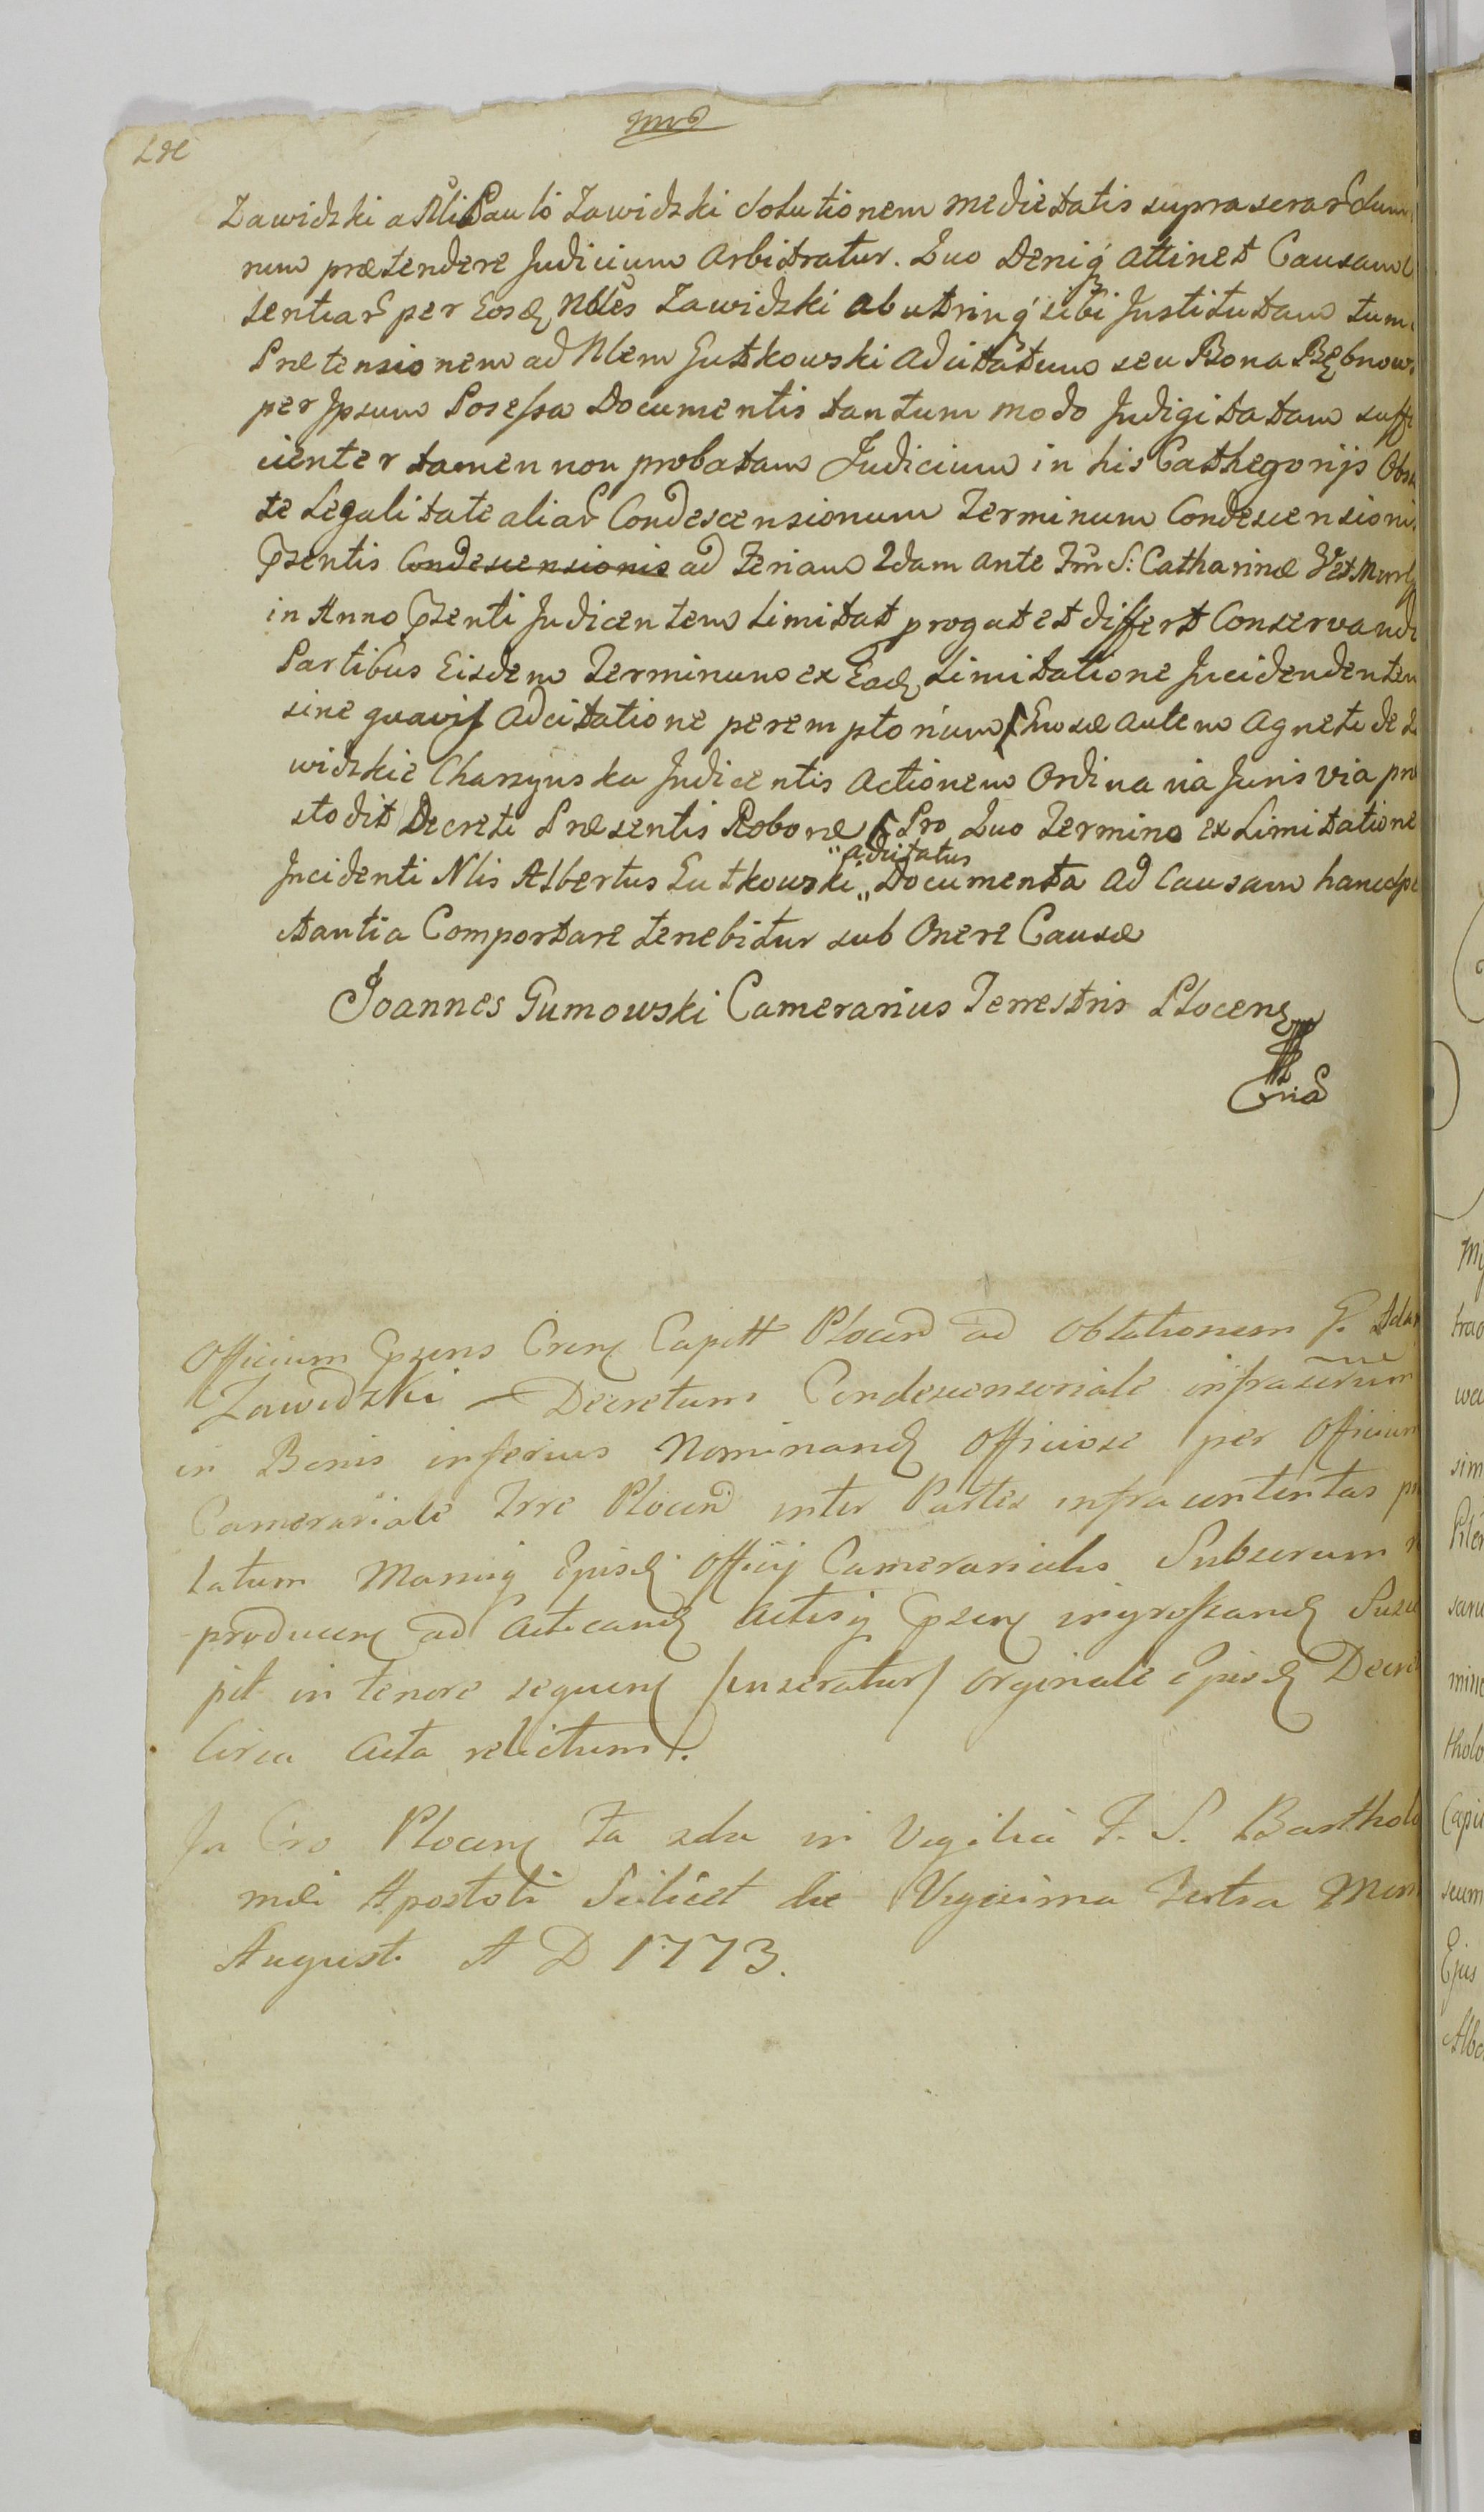 Zawidzki a Nli Paulo Zawidzki Solutionem medietatis suprascrar
rum prætendere Judicium Arbitratur. Quo Deniq attinet Causam
sentiar per Eosd Nbles Zawidzki ab utrinq sibi Institutam tum
Prætensionem ad Nlem Gutkowski Adcitatum seu Bona
per Ipsum Posessa Documentis tantum modo Indigitatam suffi
cienter tamen non probatam Judicium in his Cathegorijs
te Legalitate aliar Condescensionum Terminum Condescensionis
Psentis Condescensionis ad Feriam 2dam ante S: Catharinæ
in Anno Psenti Judicentem Limitat progat et differt Conservando
Partibus Eisdem Terminum ex Ead Limitatione Incidendentem
sine quavis Adcitatione peremptorium autem Agneti de Za
widzkie Charzynska Judicentis Actionem Ordinaria Juris via præ
stodit Decreti Præsentis Robore Pro Quo Termino ex Limitatione
adcitatus
Incidenti Nlis Albertus Gutkowski Documenta ad Causam hanc spe
ctantia Comportare tenebitur sub Onere Causæ
Joannes Gumowski Camerarius Terrestris Plocens
Officium Psens Cren Capitt Plocen ad Oblationem G. Adam
Zawidzki Decretum Condescensoriale infrascrum
in Bonis inferius Nominand Officiose per Officium
Camerariale Trre Plocen inter Partes infra contentas
latum Manuq Ejusd Officij Camerarialis Subscrum
producen ad Acticand Actisq Psen ingrossand Susce
pit in tenore sequen /inseratur/ Orginale Ejusd Decreti
circa Acta relictum.
In Cro Plocen Fa 2da in Vigilia F. S. Bartholo
mæi Apostoli Scilicet die Vigesima Tertia Mens
Augusti A D 1773.